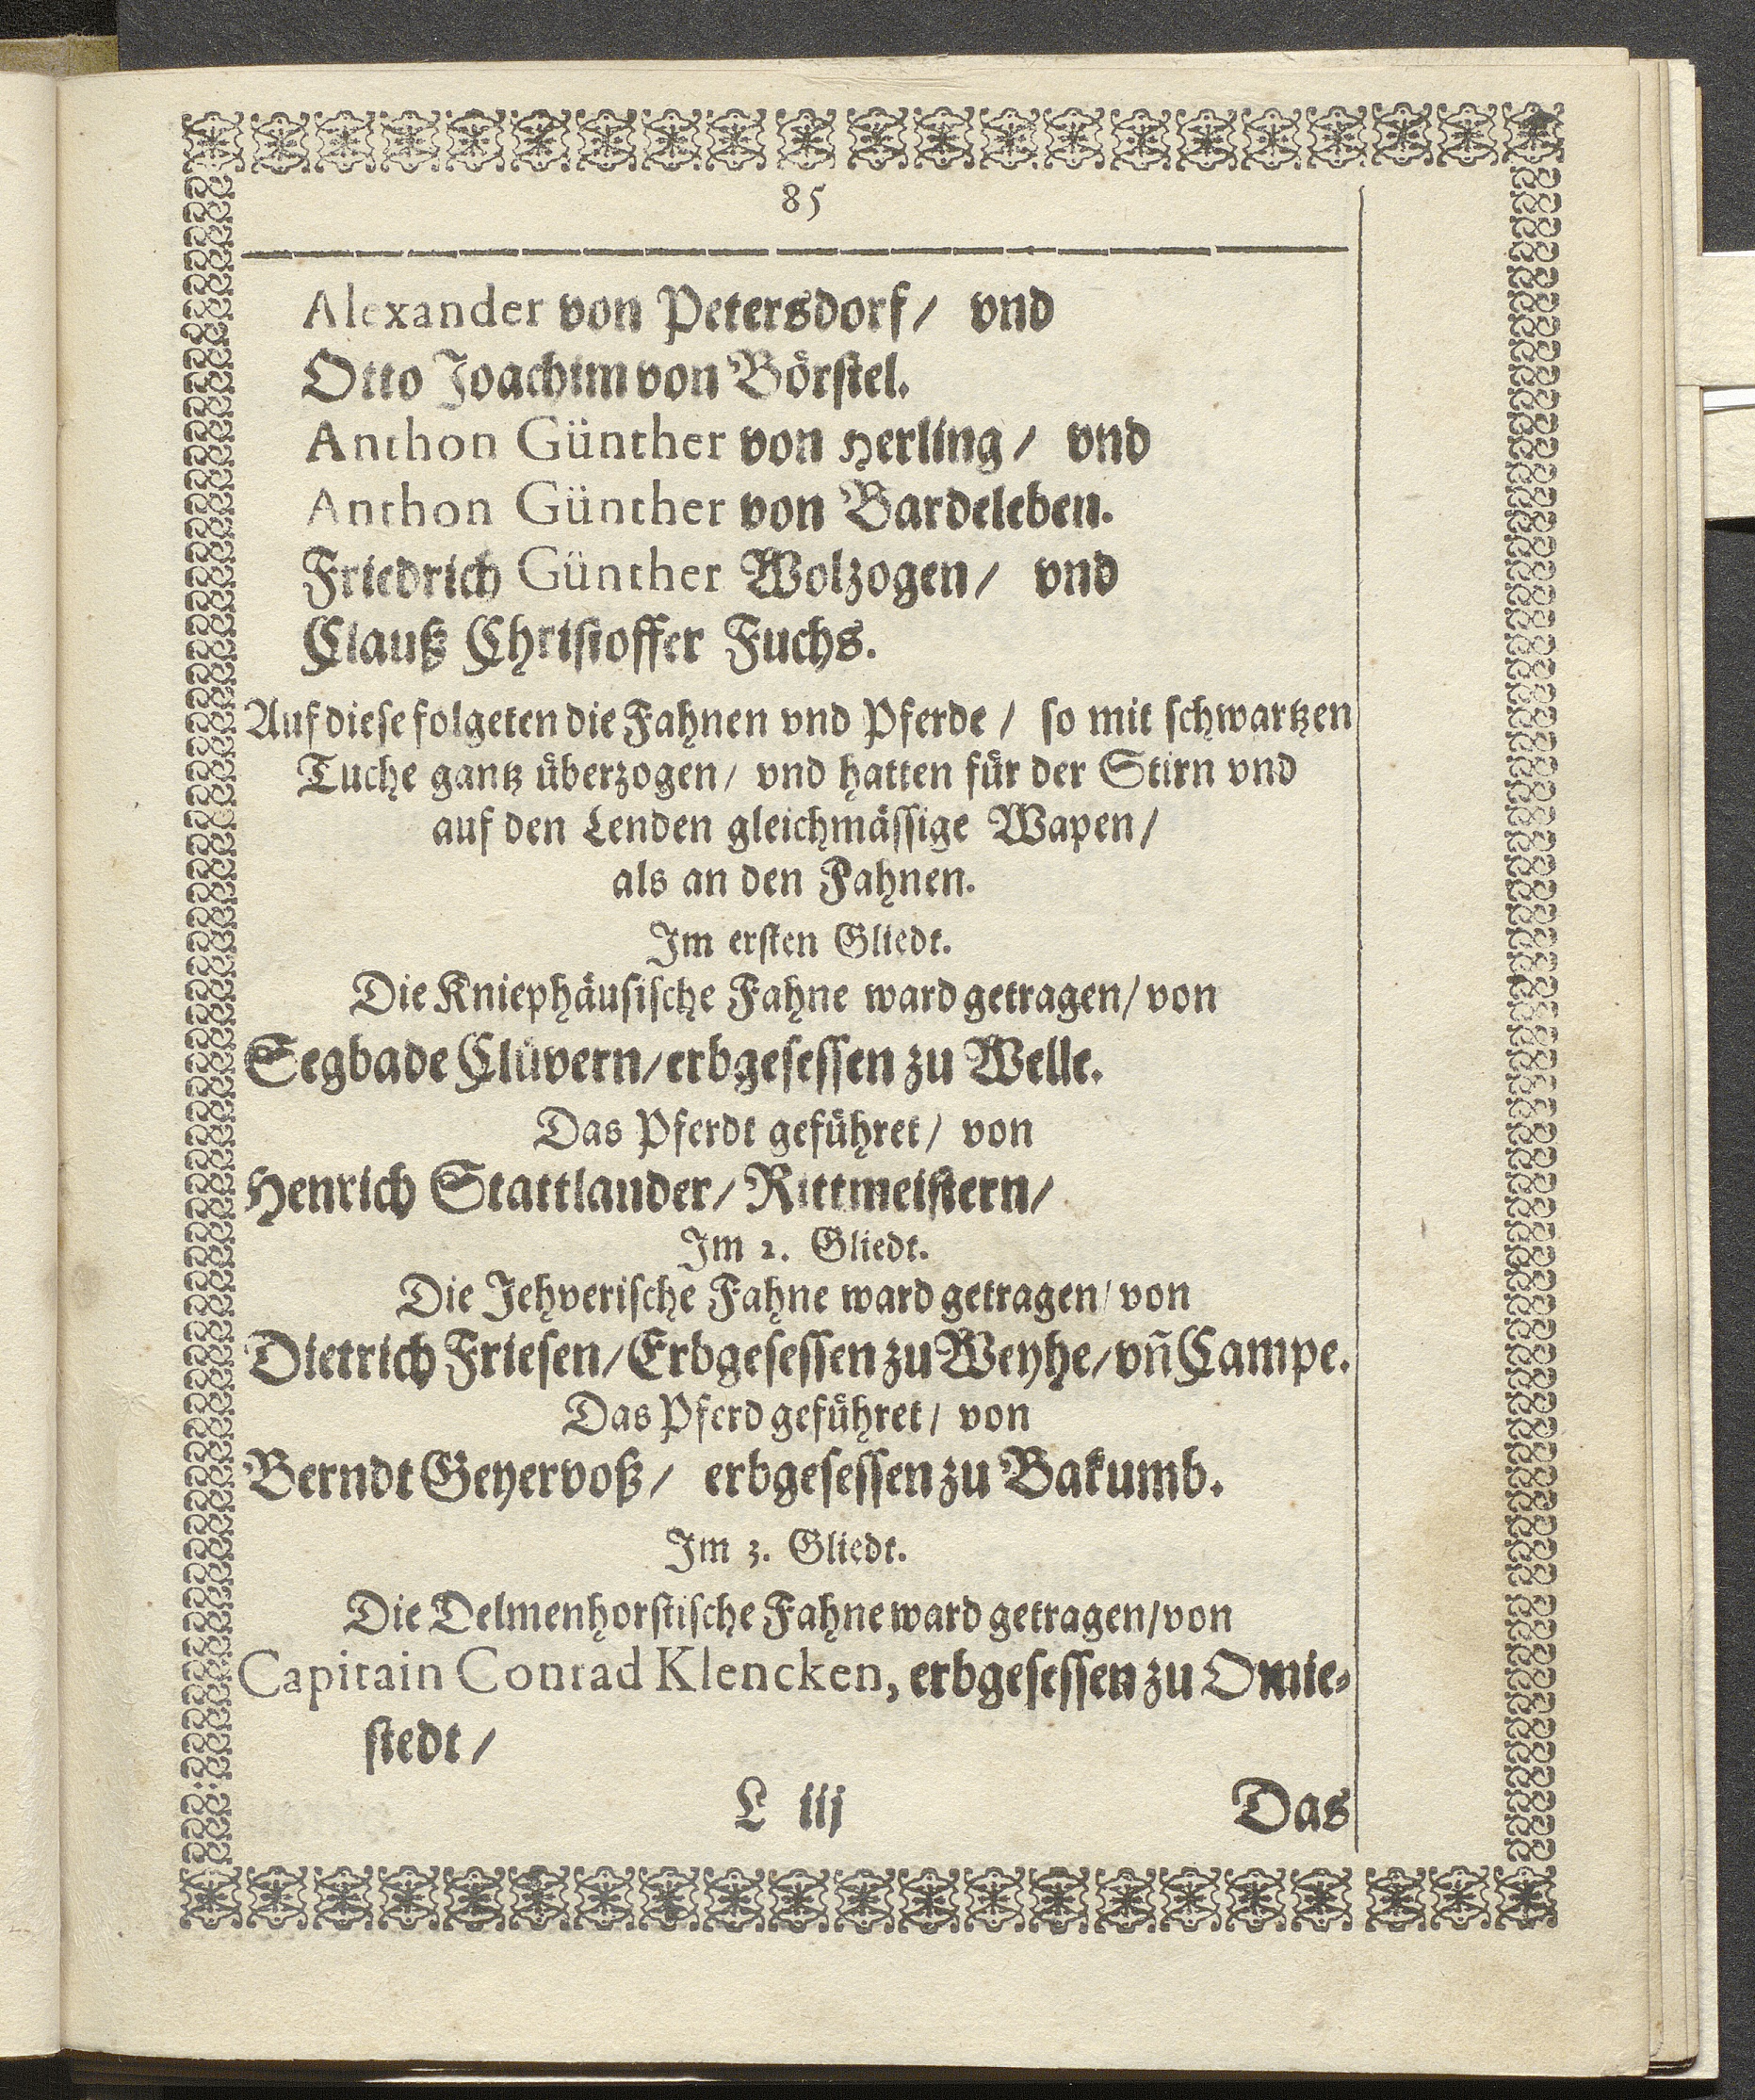 85
Alexander von Petersdorf/ vnd
Otto Joachim von Börstel.
Anthon Günther von Herling/ vnd
Anthon Günther von Bardeleben.
Friedrich Günther Wolzogen/ vnd
Clauß Christoffer Fuchs.
Auf diese folgeten die Fahnen vnd Pferde/ so mit schwartzen
Tuche gantz überzogen/ vnd hatten für der Stirn vnd
auf den Lenden gleichmässige Wapen/
als an den Fahnen.
Im ersten Gliedt.
Die Kniephäusische Fahne ward getragen/ von
Segbade Clüvern/ erbgesessen zu Welle.
Das Pferdt geführet/ von
Henrich Stattlander/ Rittmeistern/
Im 2. Gliedt.
Die Jehverische Fahne ward getragen/ von
Dietrich Friesen/ Erbgesessen zu Weyhe/ vñ Campe.
Das Pferd geführet/ von
Berndt Geyervoß/ erbgesessen zu Bakumb.
Im 3. Gliedt.
Die Delmenhorstische Fahne ward getragen/ von
Capitain Conrad Klencken, erbgesessen zu Omie-
stedt/
L iij Das